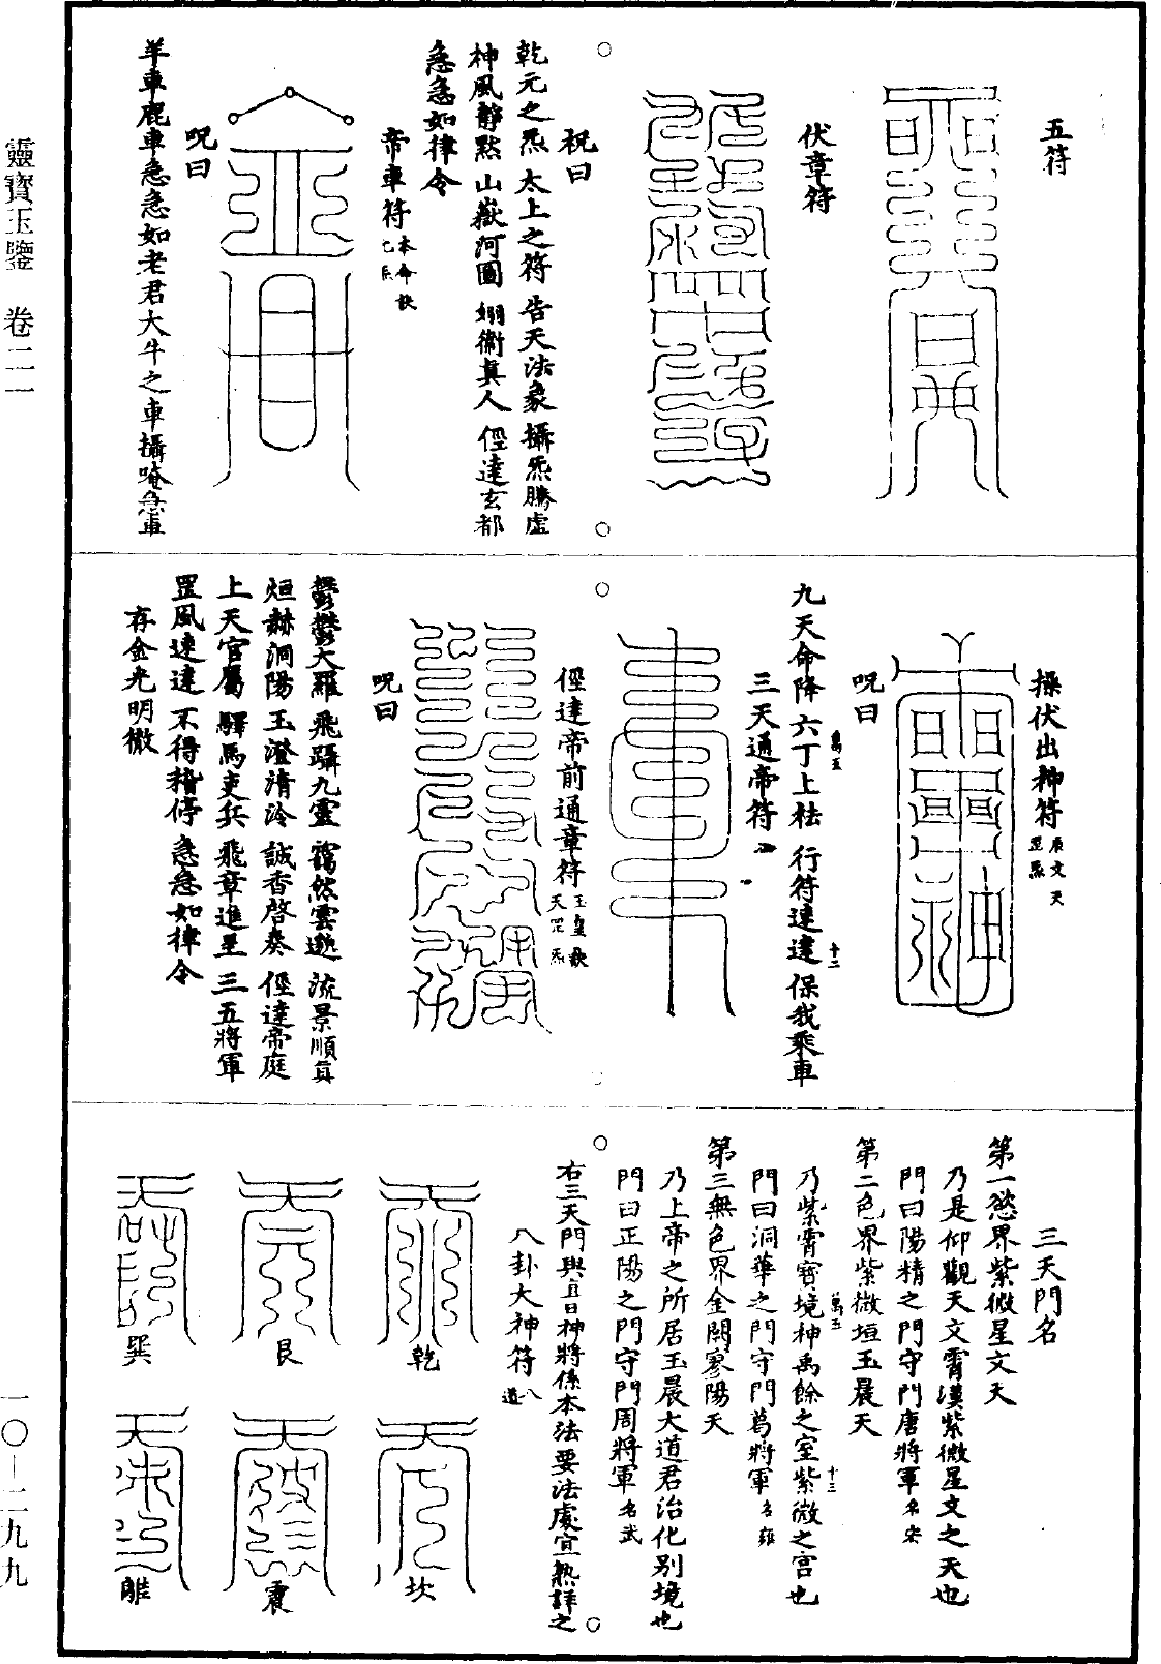 五符
伏章符
祝曰
乾元之炁 太上之符 告天法象 攝炁騰虛
神風靜默 山嶽河圖 娚衛真人 徑達玄都
急急如律令
帝車符 本命訣
呪曰
羊車鹿車急急如老君大牛之車攝唵急車
操伏出神符
呪曰
九天命降 六丁上柱 行符速達 保我乘車
三天通帝符
徑達帝前通章符 玉皇訣 天罡炁
呪曰
鬱鬱大羅 飛躡九靈 靄然雲邈 流景順真
烜赫洞陽 玉澄清泠 誠香啓奏 徑達帝庭
上天官屬 驛馬吏兵 飛章進呈 三五將軍
罡風速達 不得稽停 急急如律令
存金光明徹
三天門名
第一慾界紫微星文天
乃是仰觀天文霄漢紫微星文之天也
門曰陽精之門守門唐將軍 名宏
第二色界紫微垣玉晨天
乃紫霄寶境神禹餘之室紫微之宫也
門曰洞華之門守門葛將軍 名雍
第三無色界金闕寥陽天
乃上帝之所居玉晨大道君治化别境也
門曰正陽之門守門周將軍 名武
右三天門與直日神將係本法要法處宜熟詳之
八卦大神符 八道
乾
坎
艮
震
巽
離
靈寶玉鑒 卷二一
一〇—二九九